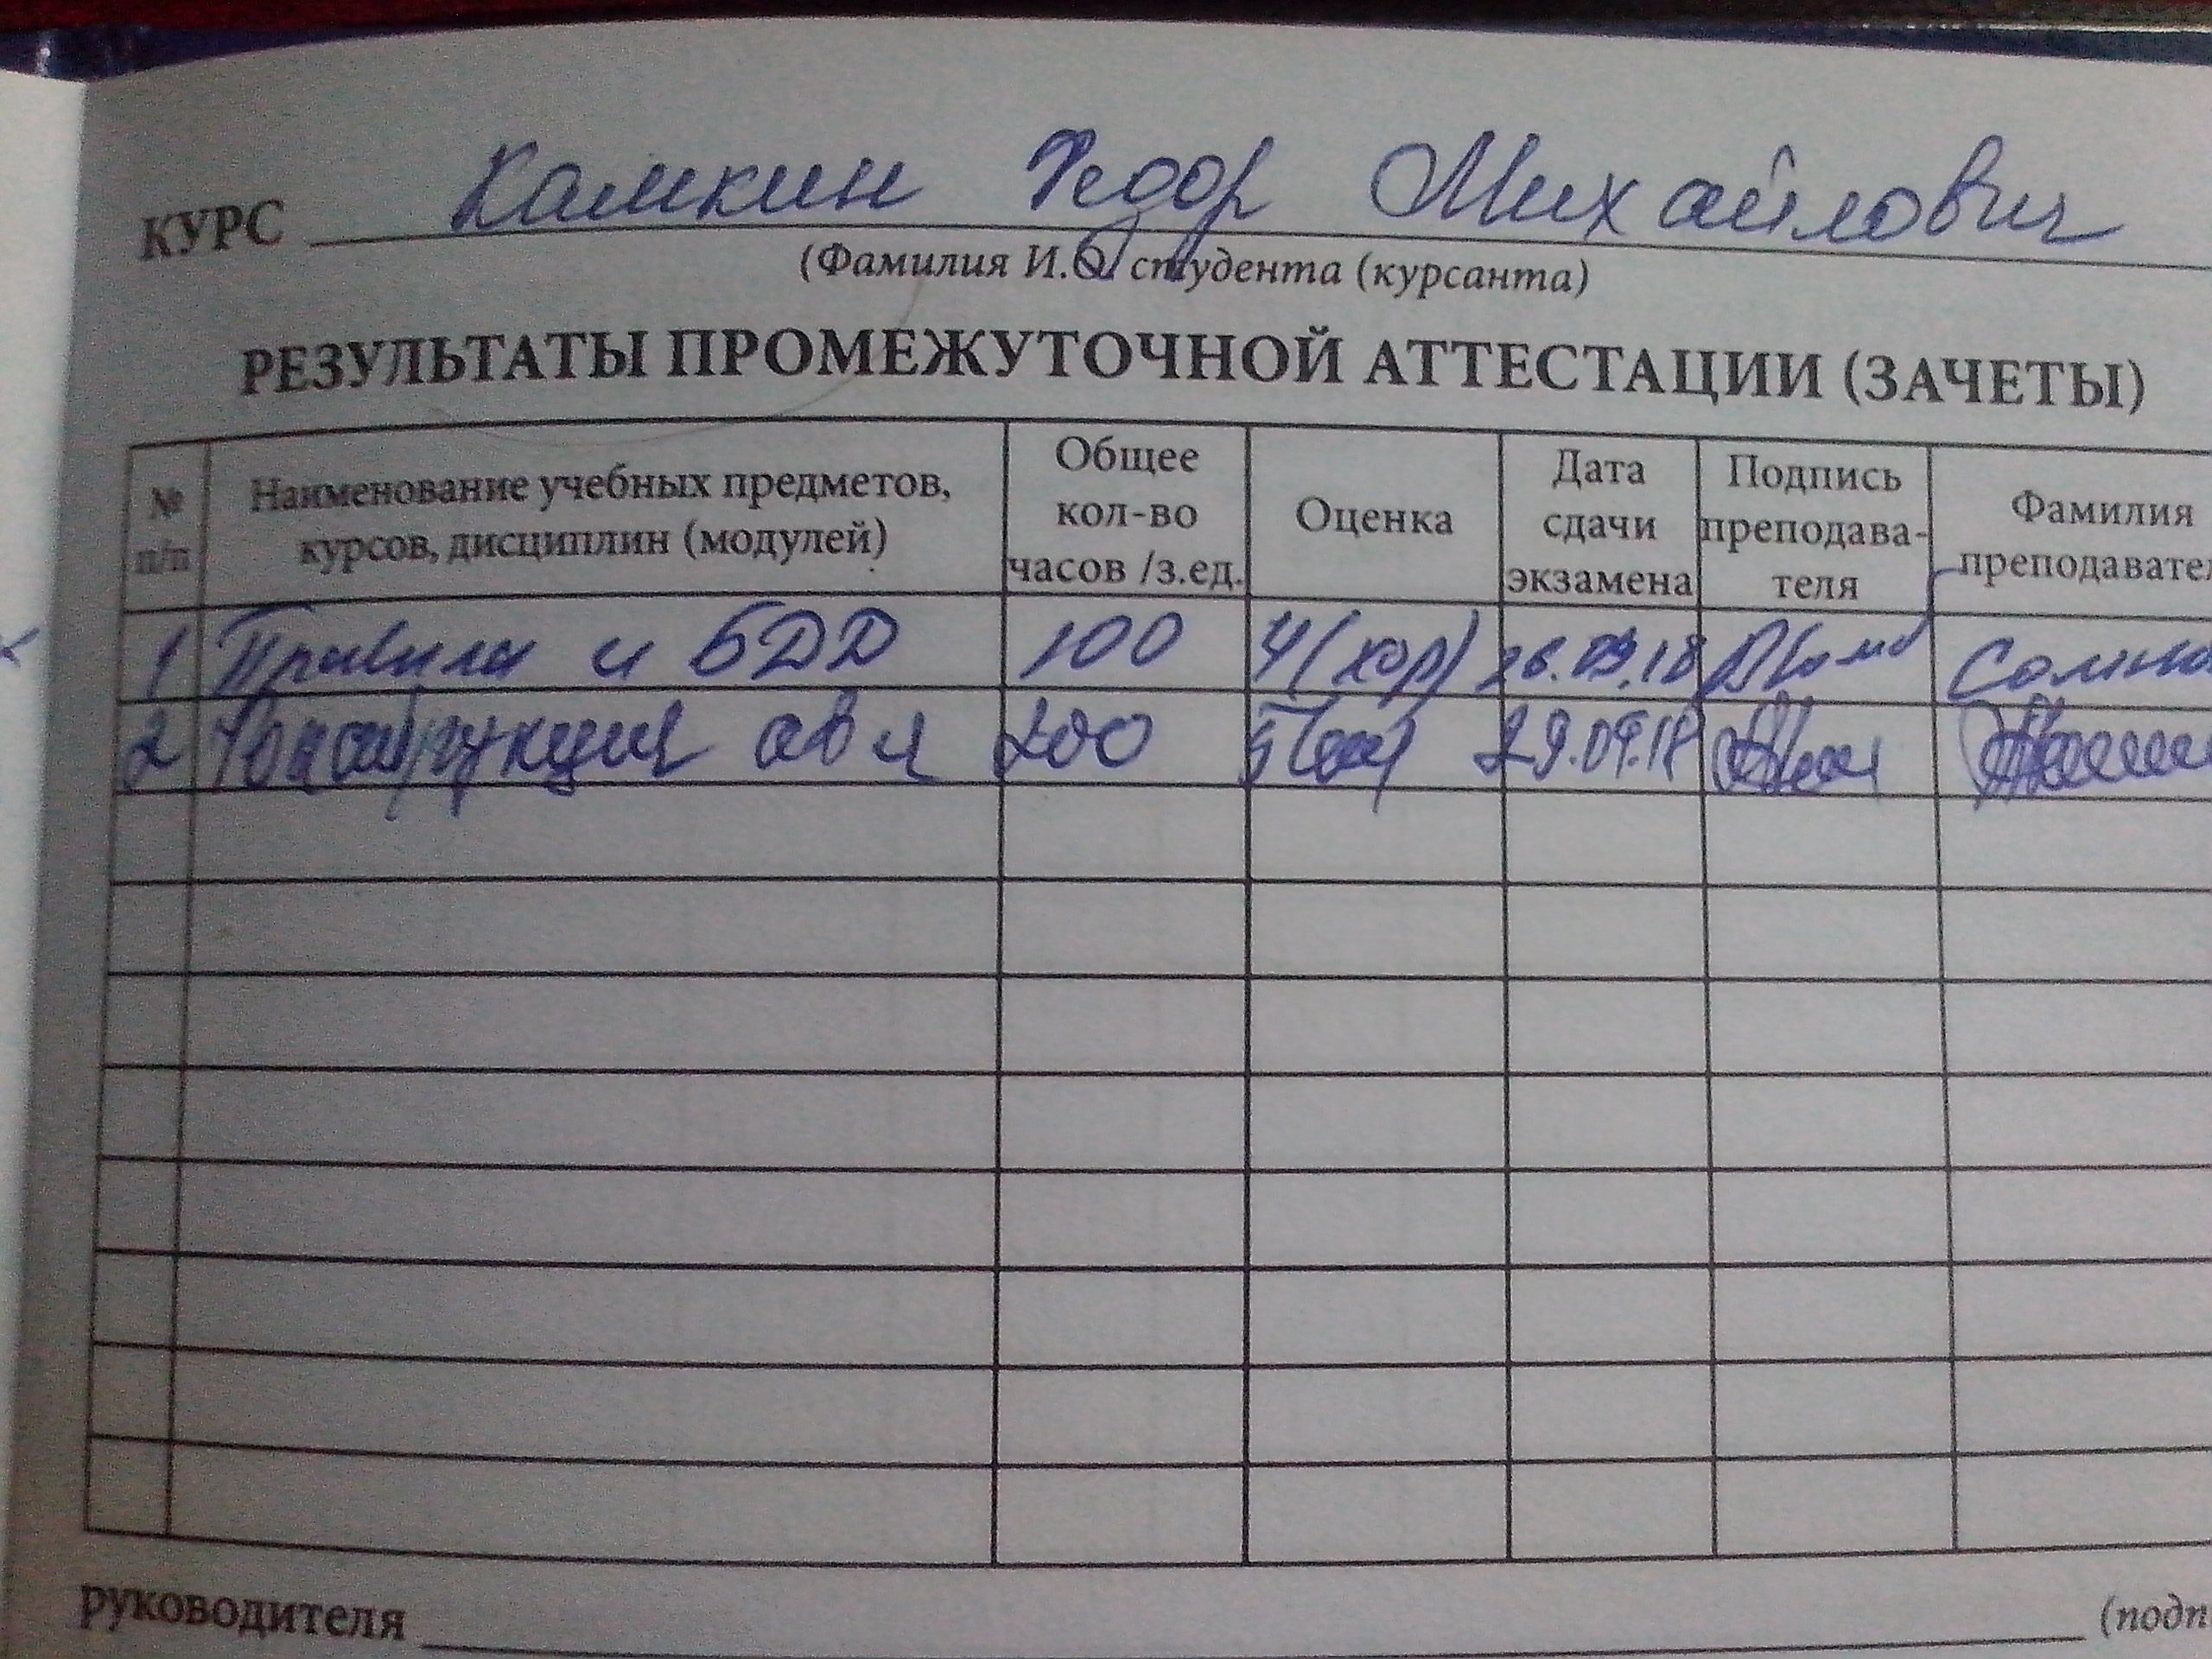 КУРС Камкин Федор Михайлович
(Фамилия И.О. студента (курсанта)
РЕЗУЛЬТАТЫ ПРОМЕЖУТОЧНОЙ АТТЕСТАЦИИ (ЗАЧЕТЫ)
№ п/п Наименование учебных предметов, курсов, дисциплин (модулей) Общее кол-во часов /з.ед. Оценка Дата сдачи экзамена Подпись преподава-теля Фамилия преподавател
1 Правила и БДД 100 4 (хор) 26.09.18
2 Конструкция авт 200 29.09.18
руководителя (подп